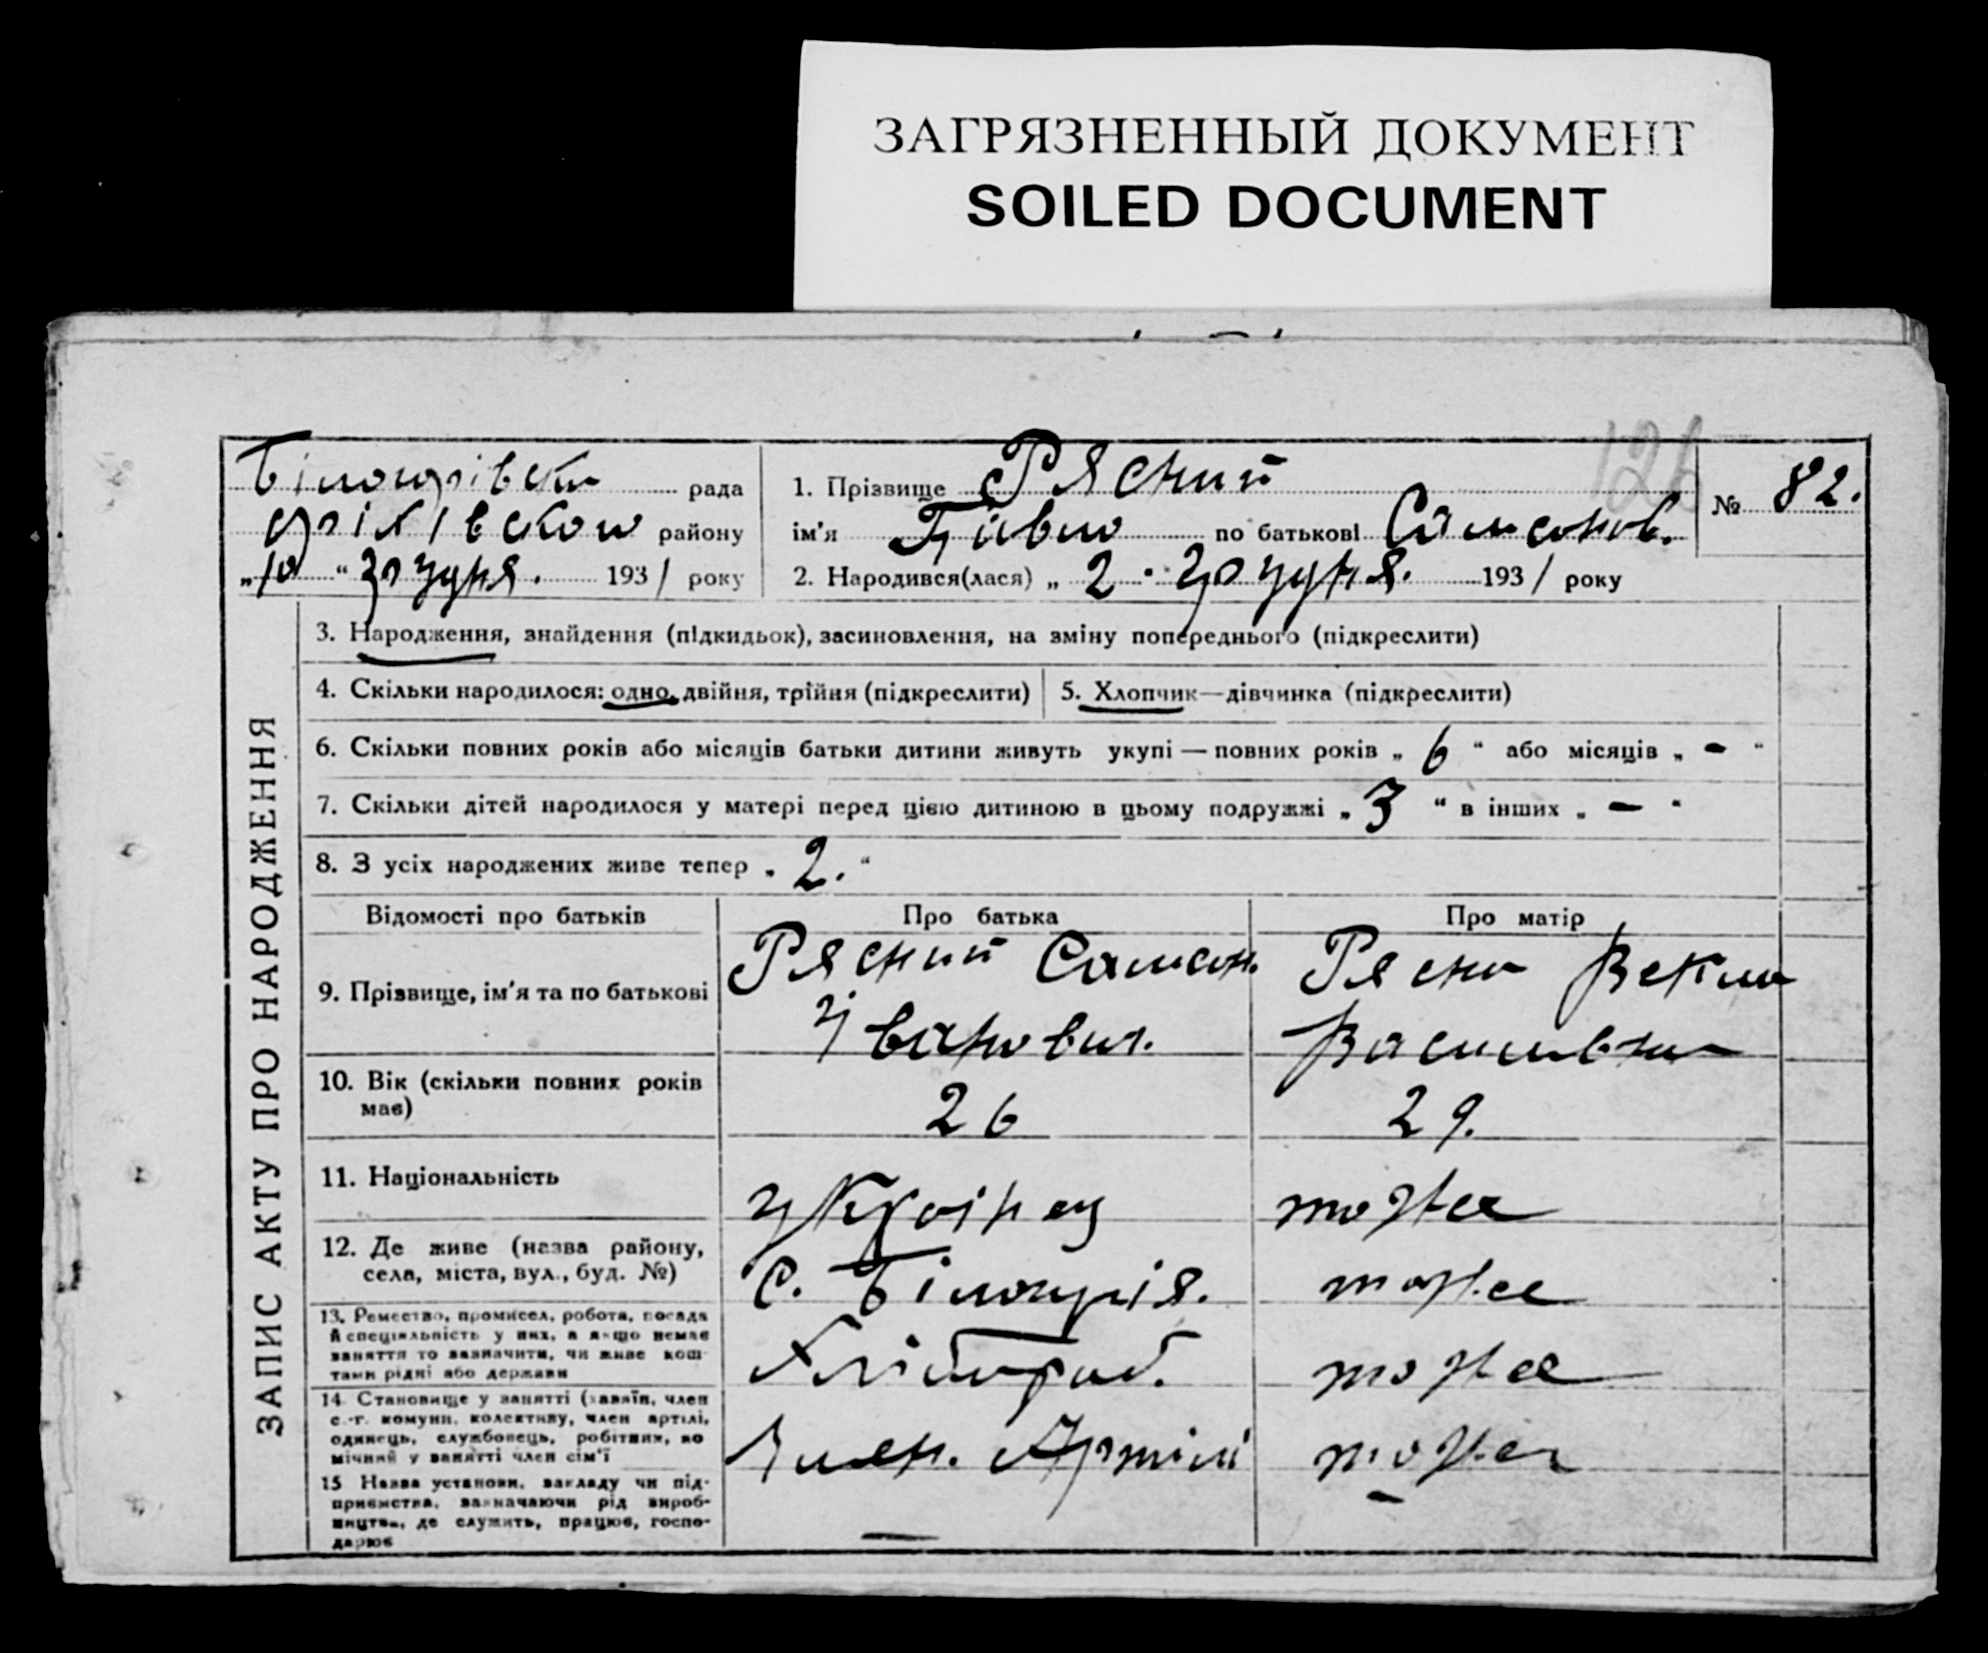 ЗАГРЯЗНЕННЫЙ ДОКУМЕНТ
SOILED DOCUMENT
126
Білогорівська рада
району
„10“ грудня. 1931 року
1. Прізвище Рясний
ім'я Павло по батькові Самсонов.
№ 82.
2. Народився(лася) „2. грудня. 1931 року
ЗАПИС АКТУ ПРО НАРОДЖЕННЯ
3. Народження, знайдення (підкидьок), засиновлення, на зміну попереднього (підкреслити)
4. Скільки народилося: одно, двійня, трійня (підкреслити)
5. Хлопчик—дівчинка (підкреслити)
6. Скільки повних років або місяців батьки дитини живуть укупі — повних років „6“ або місяців „-“
7. Скільки дітей народилося у матері перед цією дитиною в цьому подружжі „3“ в інших „-“
8. З усіх народжених живе тепер „2.“
Відомості про батьків Про батька Про матір
9. Прізвище, ім'я та по батькові
Рясний Самсон.
Іванович.
Рясна Векла
Василівна
10. Вік (скільки повних років
має)
26
29.
11. Національність
Українец
тоже
12. Де живе (назва району,
села, міста, вул., буд. №)
с. Білогорія.
тоже
13. Ремество, промисел, робота, посада
й спеціяльність у них, а якщо немає
заняття то зазначити, чи живе кош-
тами рідні або держави
Хлібороб.
тоже
14. Становище у занятті (хазяїн, член
с.-г. комуни, колективу, член артілі,
одинець, службовець, робітник, по
мічний у занятті член сім'ї
Член. Артілі
тоже
15 Назва установи, закладу чи під-
приємства, зазначаючи рід вироб-
ництва, де служить, працює, госпо-
дарює
—
-